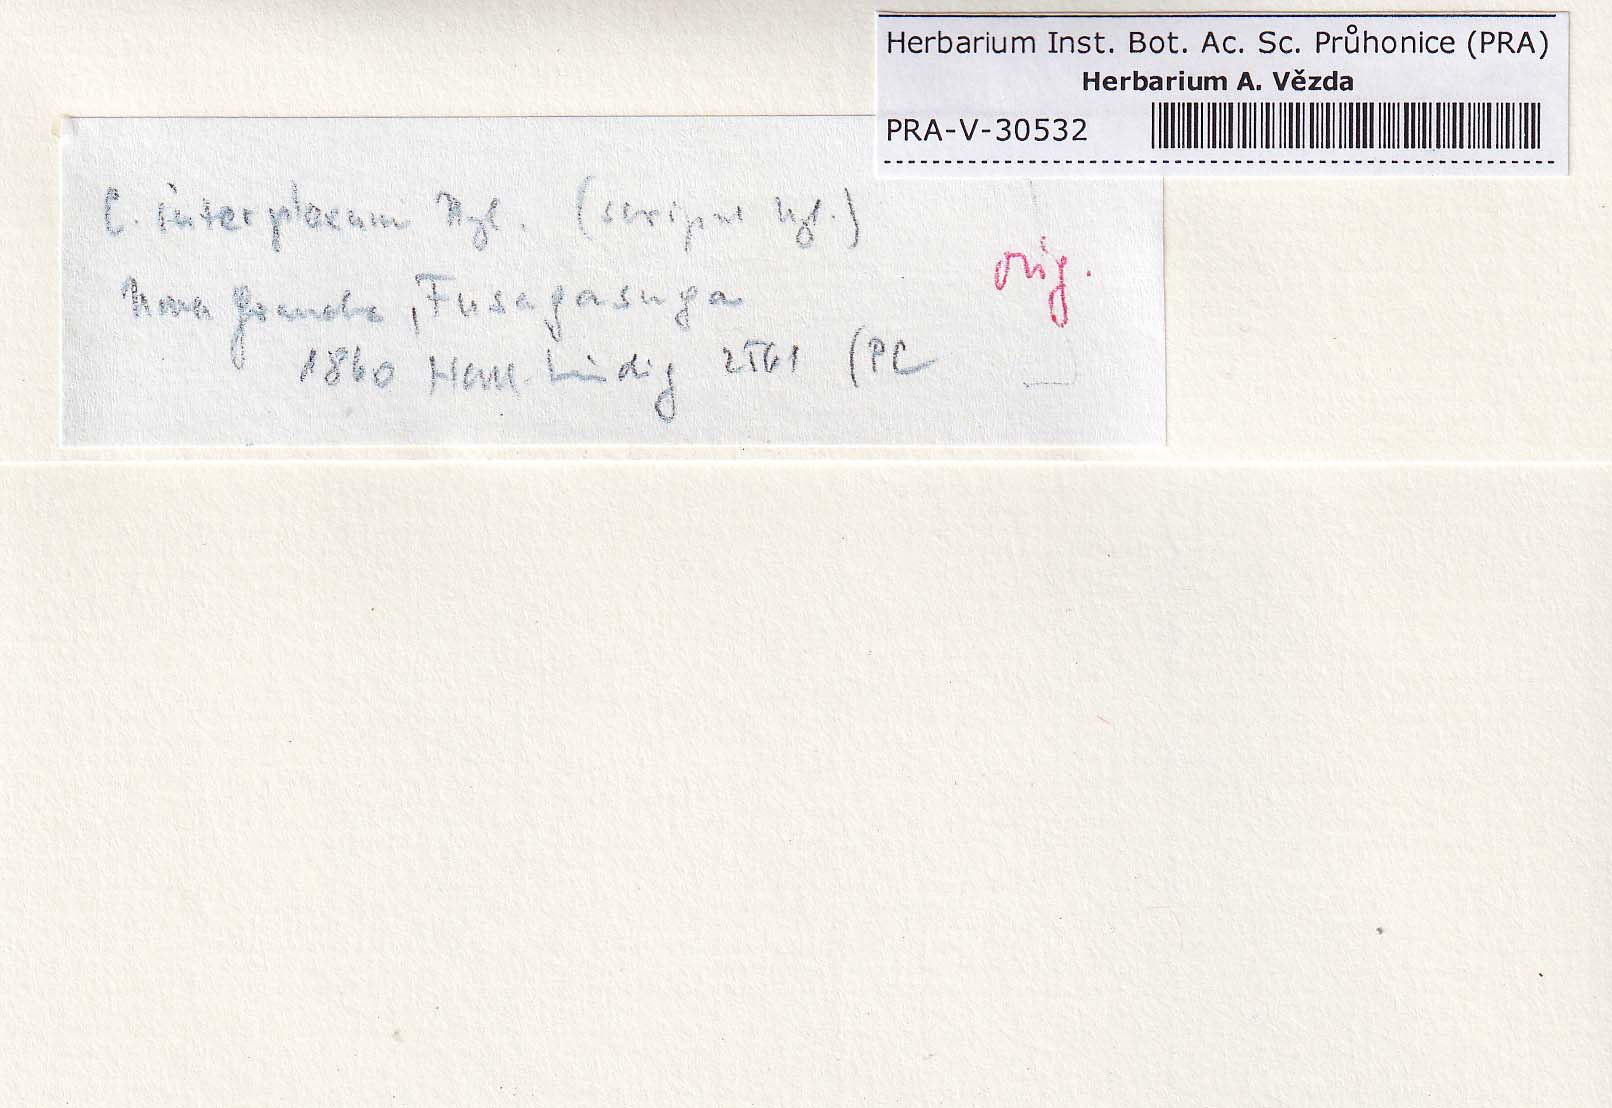 Herbarium Inst. Bot. Ac. Sc. Průhonice (PRA)
Herbarium A. Vězda
PRA-V-30532
C. interplexum Nyl. (scripsit Nyl.)
Nova Granata, Fusagasuga
orig.
1860 Lindig 2561 (PC